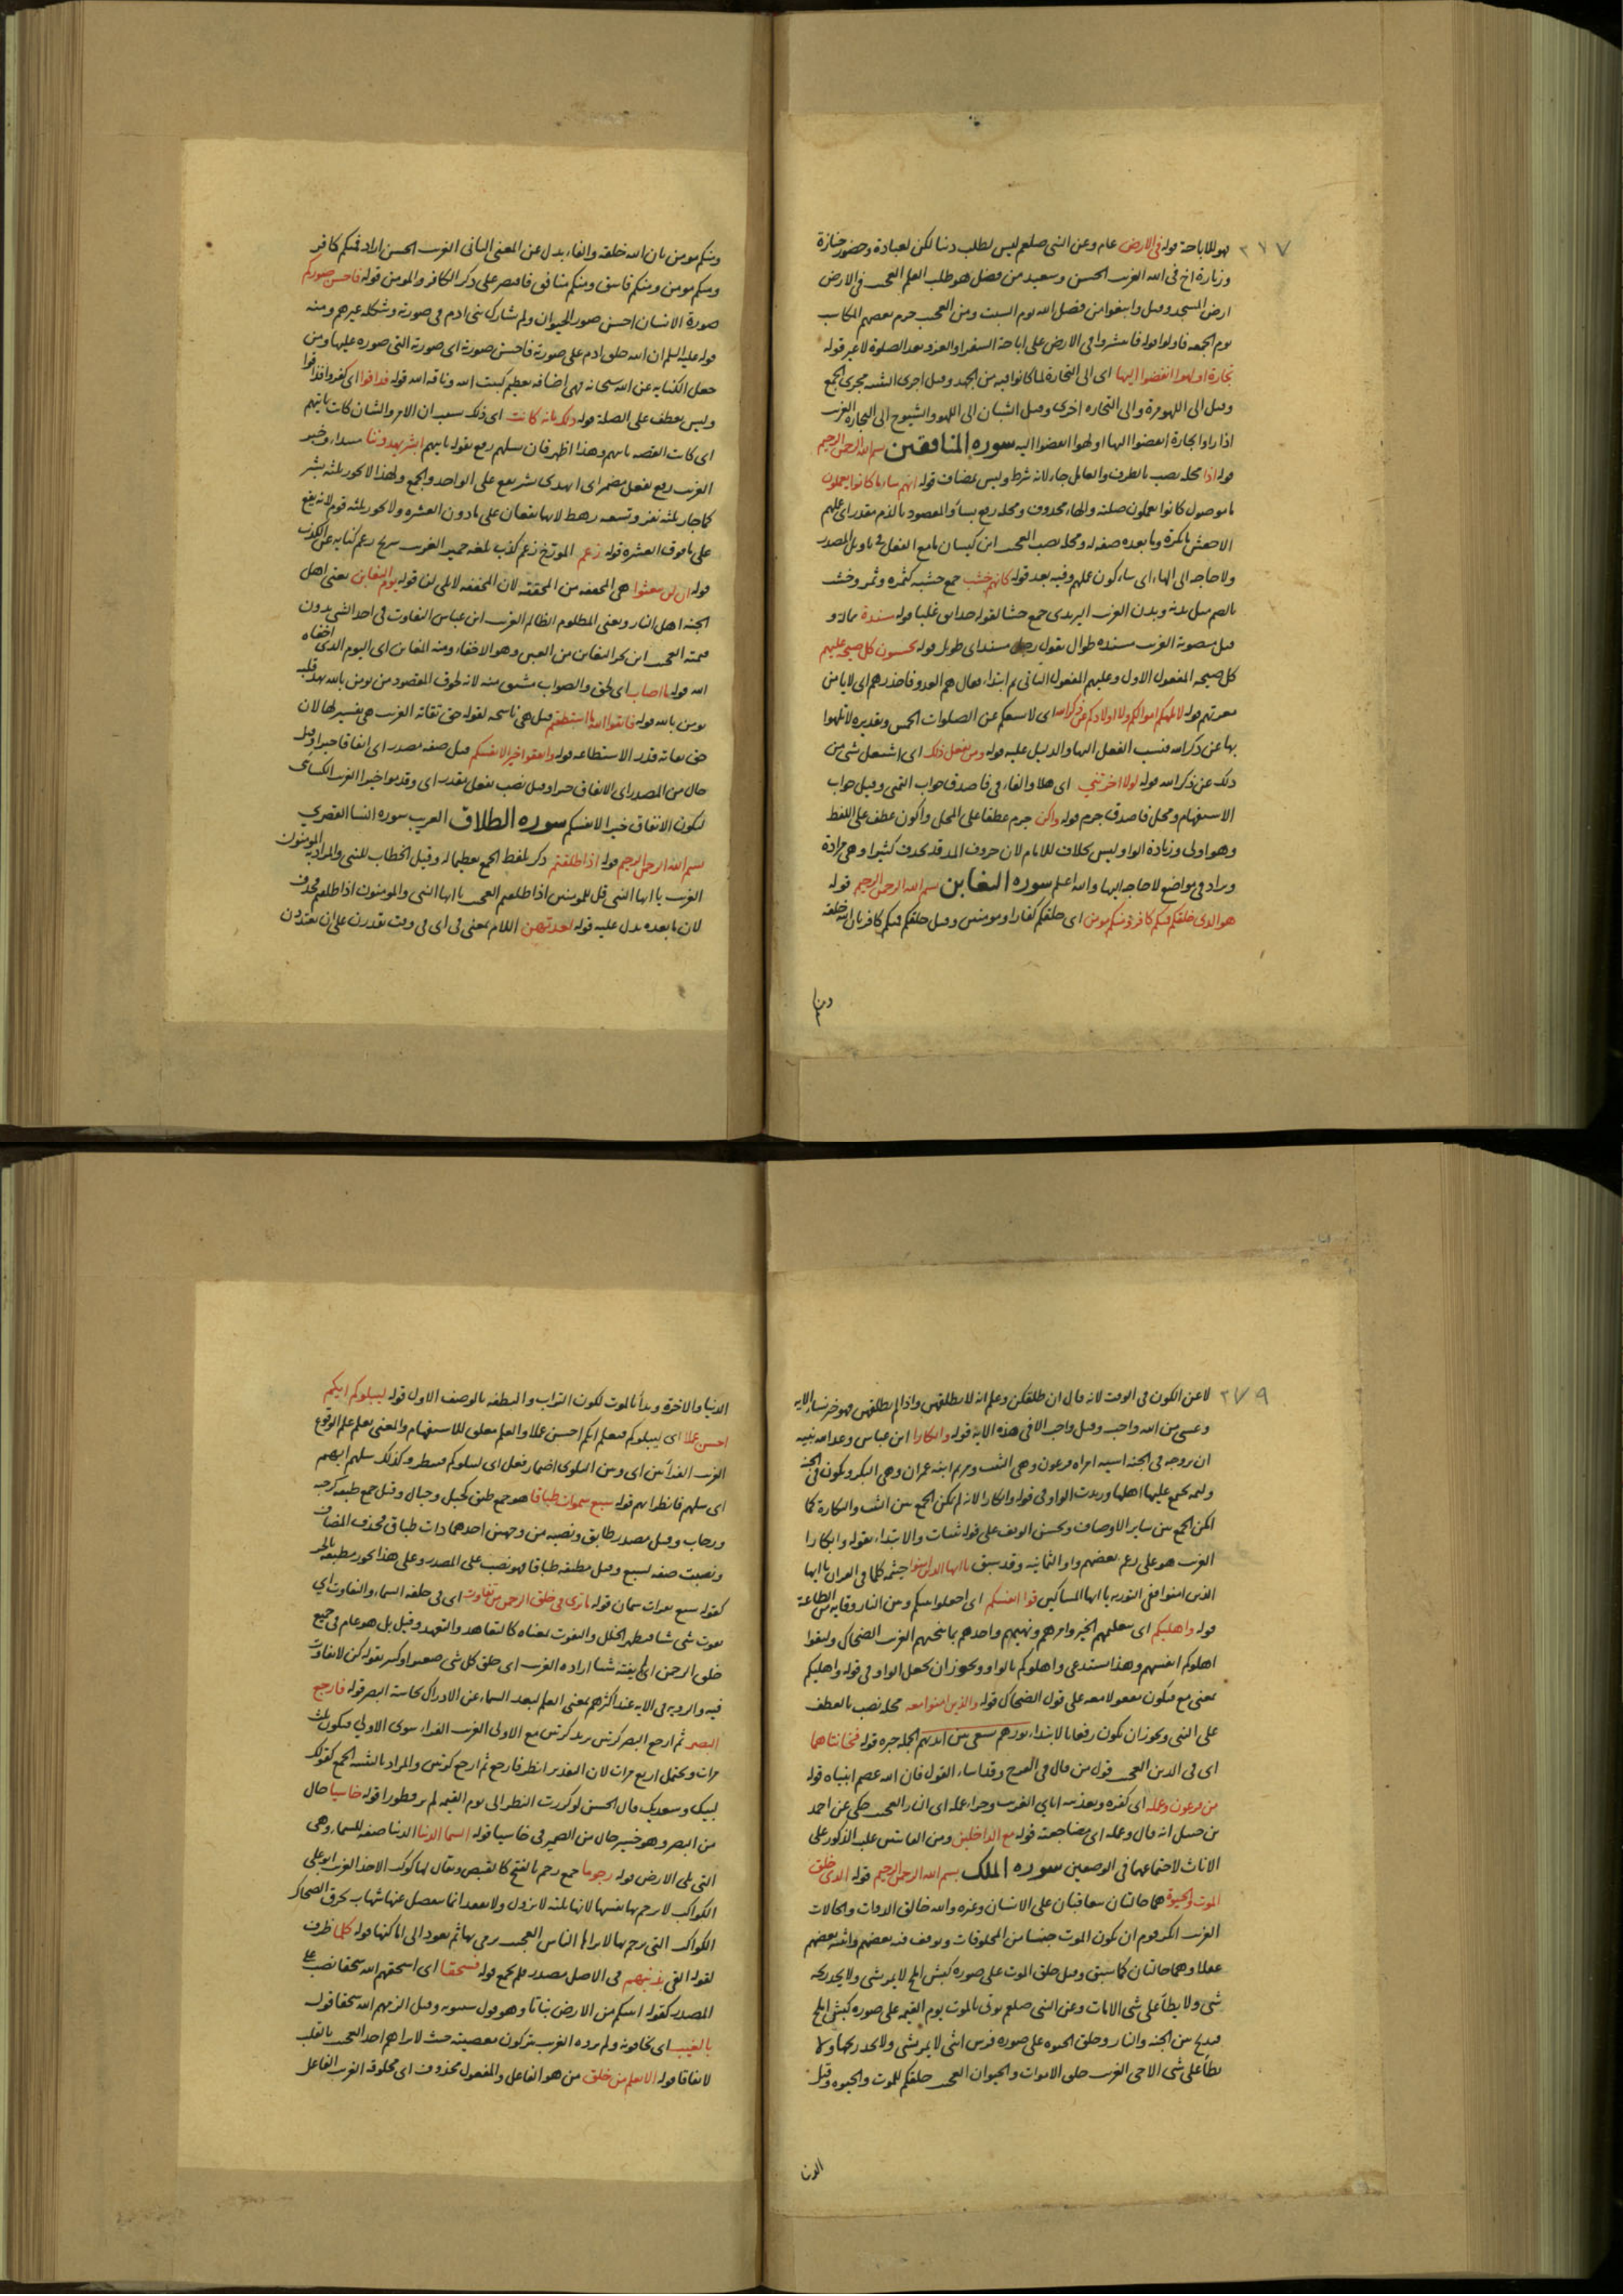 ٢٧٧
فهو للاباحة قوله في الارض عام وعن النبي صلعم ليس لطلب دنيا لكن لعيادة وحضور جنازة
وزيارة اخ في الله الغريب الحسن وسعيد من فضل هو طلب العلم العجب في الارض
ارض المسجد وقيل وابتغوا من فضل الله يوم السبت ومن العجب حرم بعضهم المكاسب
يوم الجمعة قوله فانتشروا في الارض على اباحة السفر او الغزو بعد الصلوة لا غير قوله
تجارة او لهوا انفضوا اليها اى الى التجارة لما كانوا فيه من الجهد وقيل اجرى التثنية مجرى الجمع
وقيل الى اللهو مرة والى التجارة اخرى وقيل الشبان الى اللهو والشيوخ الى التجارة الغريب
اذا راوا تجارة انفضوا اليها او لهوا انفضوا اليه سورة المنافقين بسم الله الرحمن الرحيم
قوله اذا محله نصب بالظرف والعامل جاء لانه شرط وليس بمضاف قوله انهم ساء ما كانوا يعملون
ما موصول كانوا يعملون صلته والهاء محذوف ومحله رفع بساء والمقصود بالذم مقدر اى عملهم
الاخفش ما نكرة وما بعده صفة له ومحله نصب العجب ابن كيسان ما مع الفعل في تاويل المصدر
ولا حاجه الى الهاء اى ساء كون عملهم وفيه بعد قوله كانهم خشب جمع خشبه كثمره وثمر وخشب
بالضم مثل بدنه وبدن الغريب اليزيدى جمع خشبا لقوله حدائق غلبا قوله مسندة ممالة و
قيل منصوبة الغريب مسنده طوال يقول رجل مسند اى طويل قوله يحسبون كل صيحة عليهم
كل صيحة المفعول الاول وعليهم المفعول الثانى ثم ابتداء فقال هم العدو فاحذرهم اى لا يامن
قوله لا تلهكم اموالكم ولا اولادكم عن ذكر الله اى لا يمنعكم عن الصلوات الخمس وتقديره لا تلهوا
بها عن ذكر الله فنسب الفعل اليها والدليل عليه قوله ومن يفعل ذلك اى اشتغل بشى من
ذلك عن ذكر الله قوله لولا اخرتنى اى هلا والفاء فى فاصدق جواب التمنى وقيل جواب
الاستفهام ومحل فاصدق جزم قوله واكن جزم عطفا على المحل واكون عطف على اللفظ
وهو اولى وزيادة الواو ليس بخلاف للامام لان حروف المد قد تحذف كثيرا وهى مرادة
ويزاد في مواضع لا حاجة اليها والله اعلم سورة التغابن بسم الله الرحمن الرحيم قوله
هو الذى خلقكم فمنكم كافر ومنكم مومن اى خلقكم كفارا ومومنين وقيل خلقكم فمنكم كافر بان الله خلقه
ومنكم مومن بان الله خلقه والفاء بدل عن المعنى الثانى الغريب الحسن اراد فمنكم كافر
ومنكم مومن ومنكم فاسق ومنكم منافق فاقتصر على ذكر الكافر والمومن قوله فاحسن صوركم
صورة الانسان احسن صور الحيوان ولم يشارك بنى ادم فى صورته وشكله غيرهم ومنه
قوله عليه السلم ان الله خلق ادم على صورته فاحسن صورته اى صورته التى صوره عليها ومن
جعل الكناية عن الله سبحانه فهى اضافة تعظيم كبيت الله وناقة الله قوله فذاقوا اى كفروا فذاقوا
وليس بعطف على الصلة قوله ذلك بانه كانت اى ذلك بسبب ان الامر والشان كانت تاتيهم
اى كانت القصة تاتيهم وهذا اظهر فان رسلهم رفع بقوله تاتيهم ابشر يهدوننا مبتداء وخبر
الغريب رفع بفعل مضمر اى ايهدى بشر يقع على الواحد والجمع ولهذا لا يجوز ثلثة بشر
كما جاز ثلثة نفر وتسعة رهط لانهما يقعان على ما دون العشرة ولا يجوز ثلثة قوم لانه يقع
على ما فوق العشرة قوله زعم المورخ زعم كذب بلغة حمير الغريب شريح زعم كناية عن الكذب
قوله ان لن يبعثوا هى المخففة من المثقلة لان المخففة لا تلى لن قوله يوم التغابن يغبن اهل
الجنة اهل النار ويغبن المظلوم الظالم الغريب ابن عباس التفاوت فى اخذ الشى بدون
قيمته العجب ابن بحر التغابن من الغبن وهو الاخفاء ومنه المغابن اى اليوم الذى اخفاه
الله قوله ما اصاب اى لحق والصواب مشتق منه لانه لحوق المقصود من يومن بالله يهد قلبه
يومن بالله قوله فاتقوا الله ما استطعتم قيل هى ناسخة لقوله حق تقاته الغريب هى تفسير لها لان
حق تقاته قدر الاستطاعة قوله وانفقوا خيرا لانفسكم قيل صفة مصدر اى انفاقا خيرا وقيل
حال من المصدر اى الانفاق خيرا وقيل نصب بفعل مقدر اى وقدموا خيرا الغريب الكسائى
ليكون الانفاق خيرا لانفسكم سورة الطلاق الغريب سورة النسا القصرى
بسم الله الرحمن الرحيم قوله اذا طلقتم ذكر بلفظ الجمع تعظيما له وقيل الخطاب للنبى والمراد به المومنون
الغريب يا ايها النبى قل للمومنين اذا طلقتم العجب يا ايها النبى والمومنون اذا طلقتم فحذف
لان ما بعده يدل عليه قوله لعدتهن اللام بمعنى فى اى فى وقت يقدرن على ان يعتددن
٢٧٩
لا عن الكون فى الوقت لانه قال ان طلقكن وعلم انه لا يطلقهن واذا لم يطلقهن فهو خير نساء الايه
وعسى من الله واجب وقيل واجب الا فى هذه الاية قوله وابكارا ابن عباس وعد الله نبيه
ان يزوجه فى الجنة اسية امراه فرعون وهى الثيب ومريم ابنة عمران وهى البكر ويكون فى الجنة
وليمة يجتمع عليها اهلها وزيدت الواو فى قوله وابكارا لانه لم يكن الجمع بين الثيب والبكارة كما
امكن الجمع بين ساير الاوصاف ويحسن الوقف على قوله ثيبات والابتداء بقوله وابكارا
الغريب هو على زعم بعضهم واو الثمانية وقد سبق يا ايها الذين امنوا خيثمة كلما فى القران يا ايها
الذين امنوا ففى التورية يا ايها المساكين قوا انفسكم اى اجعلوا بينكم وبين النار وقاية من الطاعة
قوله واهليكم اى بتعليمهم الخير وامرهم ونهيهم واخذهم بما ينجيهم الغريب الضحاك وليقوا
اهلوكم انفسهم وهذا يستدعى واهلوكم بالواو ويجوز ان يجعل الواو فى قوله واهليكم
بمعنى مع فيكون مفعولا معه على قول الضحاك قوله والذين امنوا معه محله نصب بالعطف
على النبى ويجوز ان يكون رفعا بالابتداء نورهم يسعى بين ايديهم الجملة خبره قوله فخانتاهما
اى فى الدين العجب قول من قال فى الفرج وقد اساء القول فان الله عصم انبياه قوله
من فرعون وعمله اى كفره وتعذيبه اياى الغريب وجزاء عمله اى النار العجب حكى عن احمد
بن حنبل انه قال وعمله اى مضاجعته قوله مع الداخلين ومن القانتين غلب الذكور على
الاناث لاجتماعهما فى الوصفين سورة الملك بسم الله الرحمن الرحيم قوله الذى خلق
الموت والحيوة هما حالتان يتعاقبان على الانسان وغيره والله خالق الذوات والحالات
الغريب انكر قوم ان يكون الموت جنسا من المخلوقات وتوقف فيه بعضهم واثبته بعضهم
عقلا وهما حالتان كما سبق وقيل خلق الموت على صورة كبش املح لا يمر بشى ولا يجد ريحه
شى ولا يطأ على شى الا مات وعن النبى صلعم يوتى بالموت يوم القيمة على صورة كبش املح
فيذبح بين الجنة والنار وخلق الحيوة على صورة فرس انثى لا يمر بشى ولا يجد ريحها ولا
يطأ على شى الا حى الغريب خلق الاموات والحيوان العجب خلقكم للموت والحيوة وقيل
الدنيا والاخرة وبدأ بالموت لكون التراب والنطفة بالوصف الاول قوله ليبلوكم ايكم
احسن عملا اى ليبلوكم فيعلم ايكم احسن عملا والعلم معلق للاستفهام والمعنى يعلم علم الوقوع
الغريب الفراء بين اى وبين البلوى اضمار فعل اى ليبلوكم فينظر وكذلك سلهم ايهم
اى سلهم فانظر ايهم قوله سبع سموات طباقا هو جمع طبق كجبل وجبال وقيل جمع طبقة كرحبة
ورحاب وقيل مصدر طابق ونصبه من وجهين احدهما ذات طباق فحذف المضاف
ونصبت صفة لسبع وقيل مطبقة طباقا فهو نصب على المصدر وعلى هذا يجوز مطبقة بالجر
كقوله سبع بقرات سمان قوله ما ترى فى خلق الرحمن من تفاوت اى فى خلقه السماء والتفاوت اى
يفوت شى شيا فيظهر الخلل والتفوت بمعناه كالتعاهد والتعهد وقيل بل هو عام فى جميع
خلق الرحمن اى لم يفته شيا اراده الغريب اى خلق كل شى صغير او كبير بقوله كن لا تفاوت
فيه والروية فى الاية عند اكثرهم بمعنى العلم لبعد السماء عن الادراك بحاسة البصر قوله فارجع
البصر ثم ارجع البصر كرتين يريد كرتين مع الاولى الغريب الفراء سوى الاولى فيكون ثلث
مرات ويحتمل اربع مرات لان التقدير انظر فارجع ثم ارجع كرتين والمراد بالتثنية الجمع كقولك
لبيك وسعديك قال الحسن لو كررت النظر الى يوم القيمة لم تر فطورا قوله خاسيا حال
من البصر وهو حسير حال من الضمير فى خاسيا قوله السما الدنيا الدنيا صفة للسماء وهى
التى تلى الارض قوله رجوما جمع رجم بالفتح كالقبض ويقال لها كوكب الاخذ الغريب ابو على
الكواكب لا يرجم بها انفسها لانها ثابتة لا تزول ولا تفقد انما ينفصل عنها شهاب يحرق الضحاك
الكواكب التى يرجم بها لا يراها الناس العجب يرمى بها ثم يعود الى اماكنها قوله كلما ظرف
لقوله القى بذنبهم فى الاصل مصدر فلم يجمع قوله فسحقا اى اسحقهم الله سحقا نصب على
المصدر كقوله انبتكم من الارض نباتا وهو قول سيبويه وقيل الزمهم الله سحقا قوله
بالغيب اى يخافونه ولم يروه الغريب يتركون معصيته حيث لا يراهم احد العجب بالقلب
لا نفاقا قوله الا يعلم من خلق من هو الفاعل والمفعول محذوف اى مخلوقه الغريب الفاعل